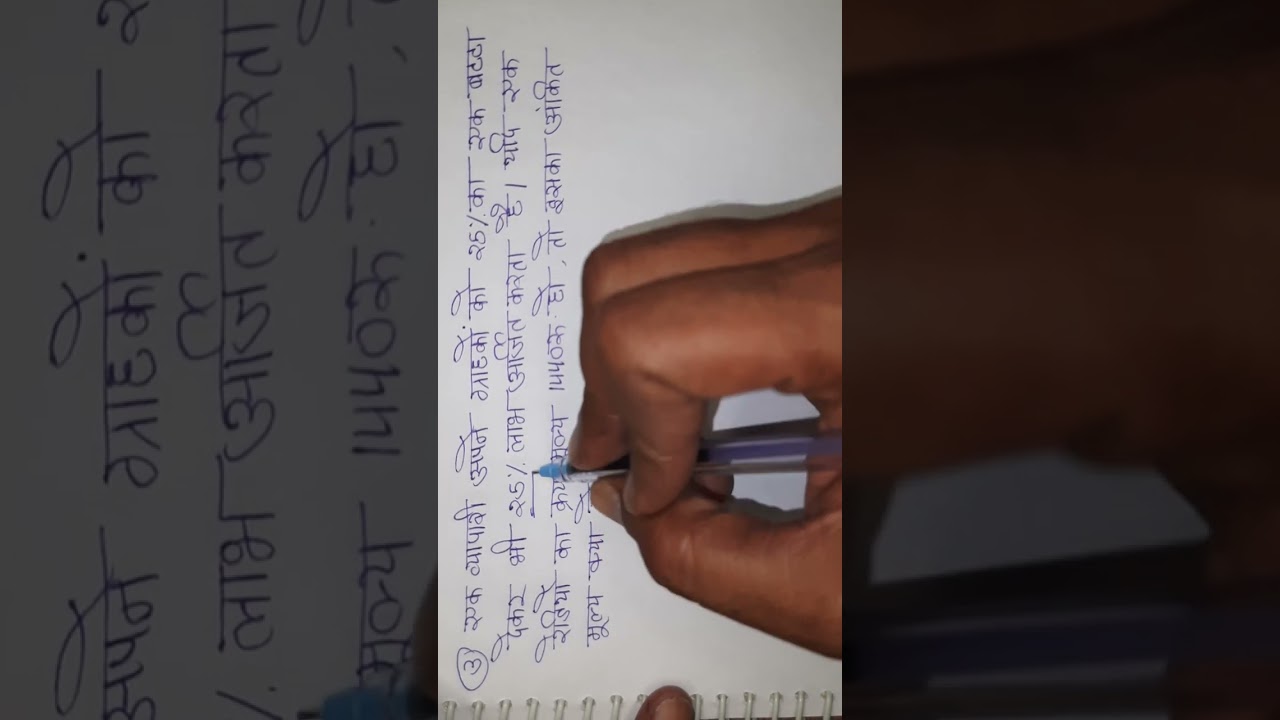 ③ एक व्यापारी अपने ग्राहकों को 25% का एक बट्टा
देकर भी 25% लाभ अर्जित करता है। यदि एक
रेडियो का क्रय मूल्य 1440रू. हो, तो इसका अंकित
मूल्य क्या